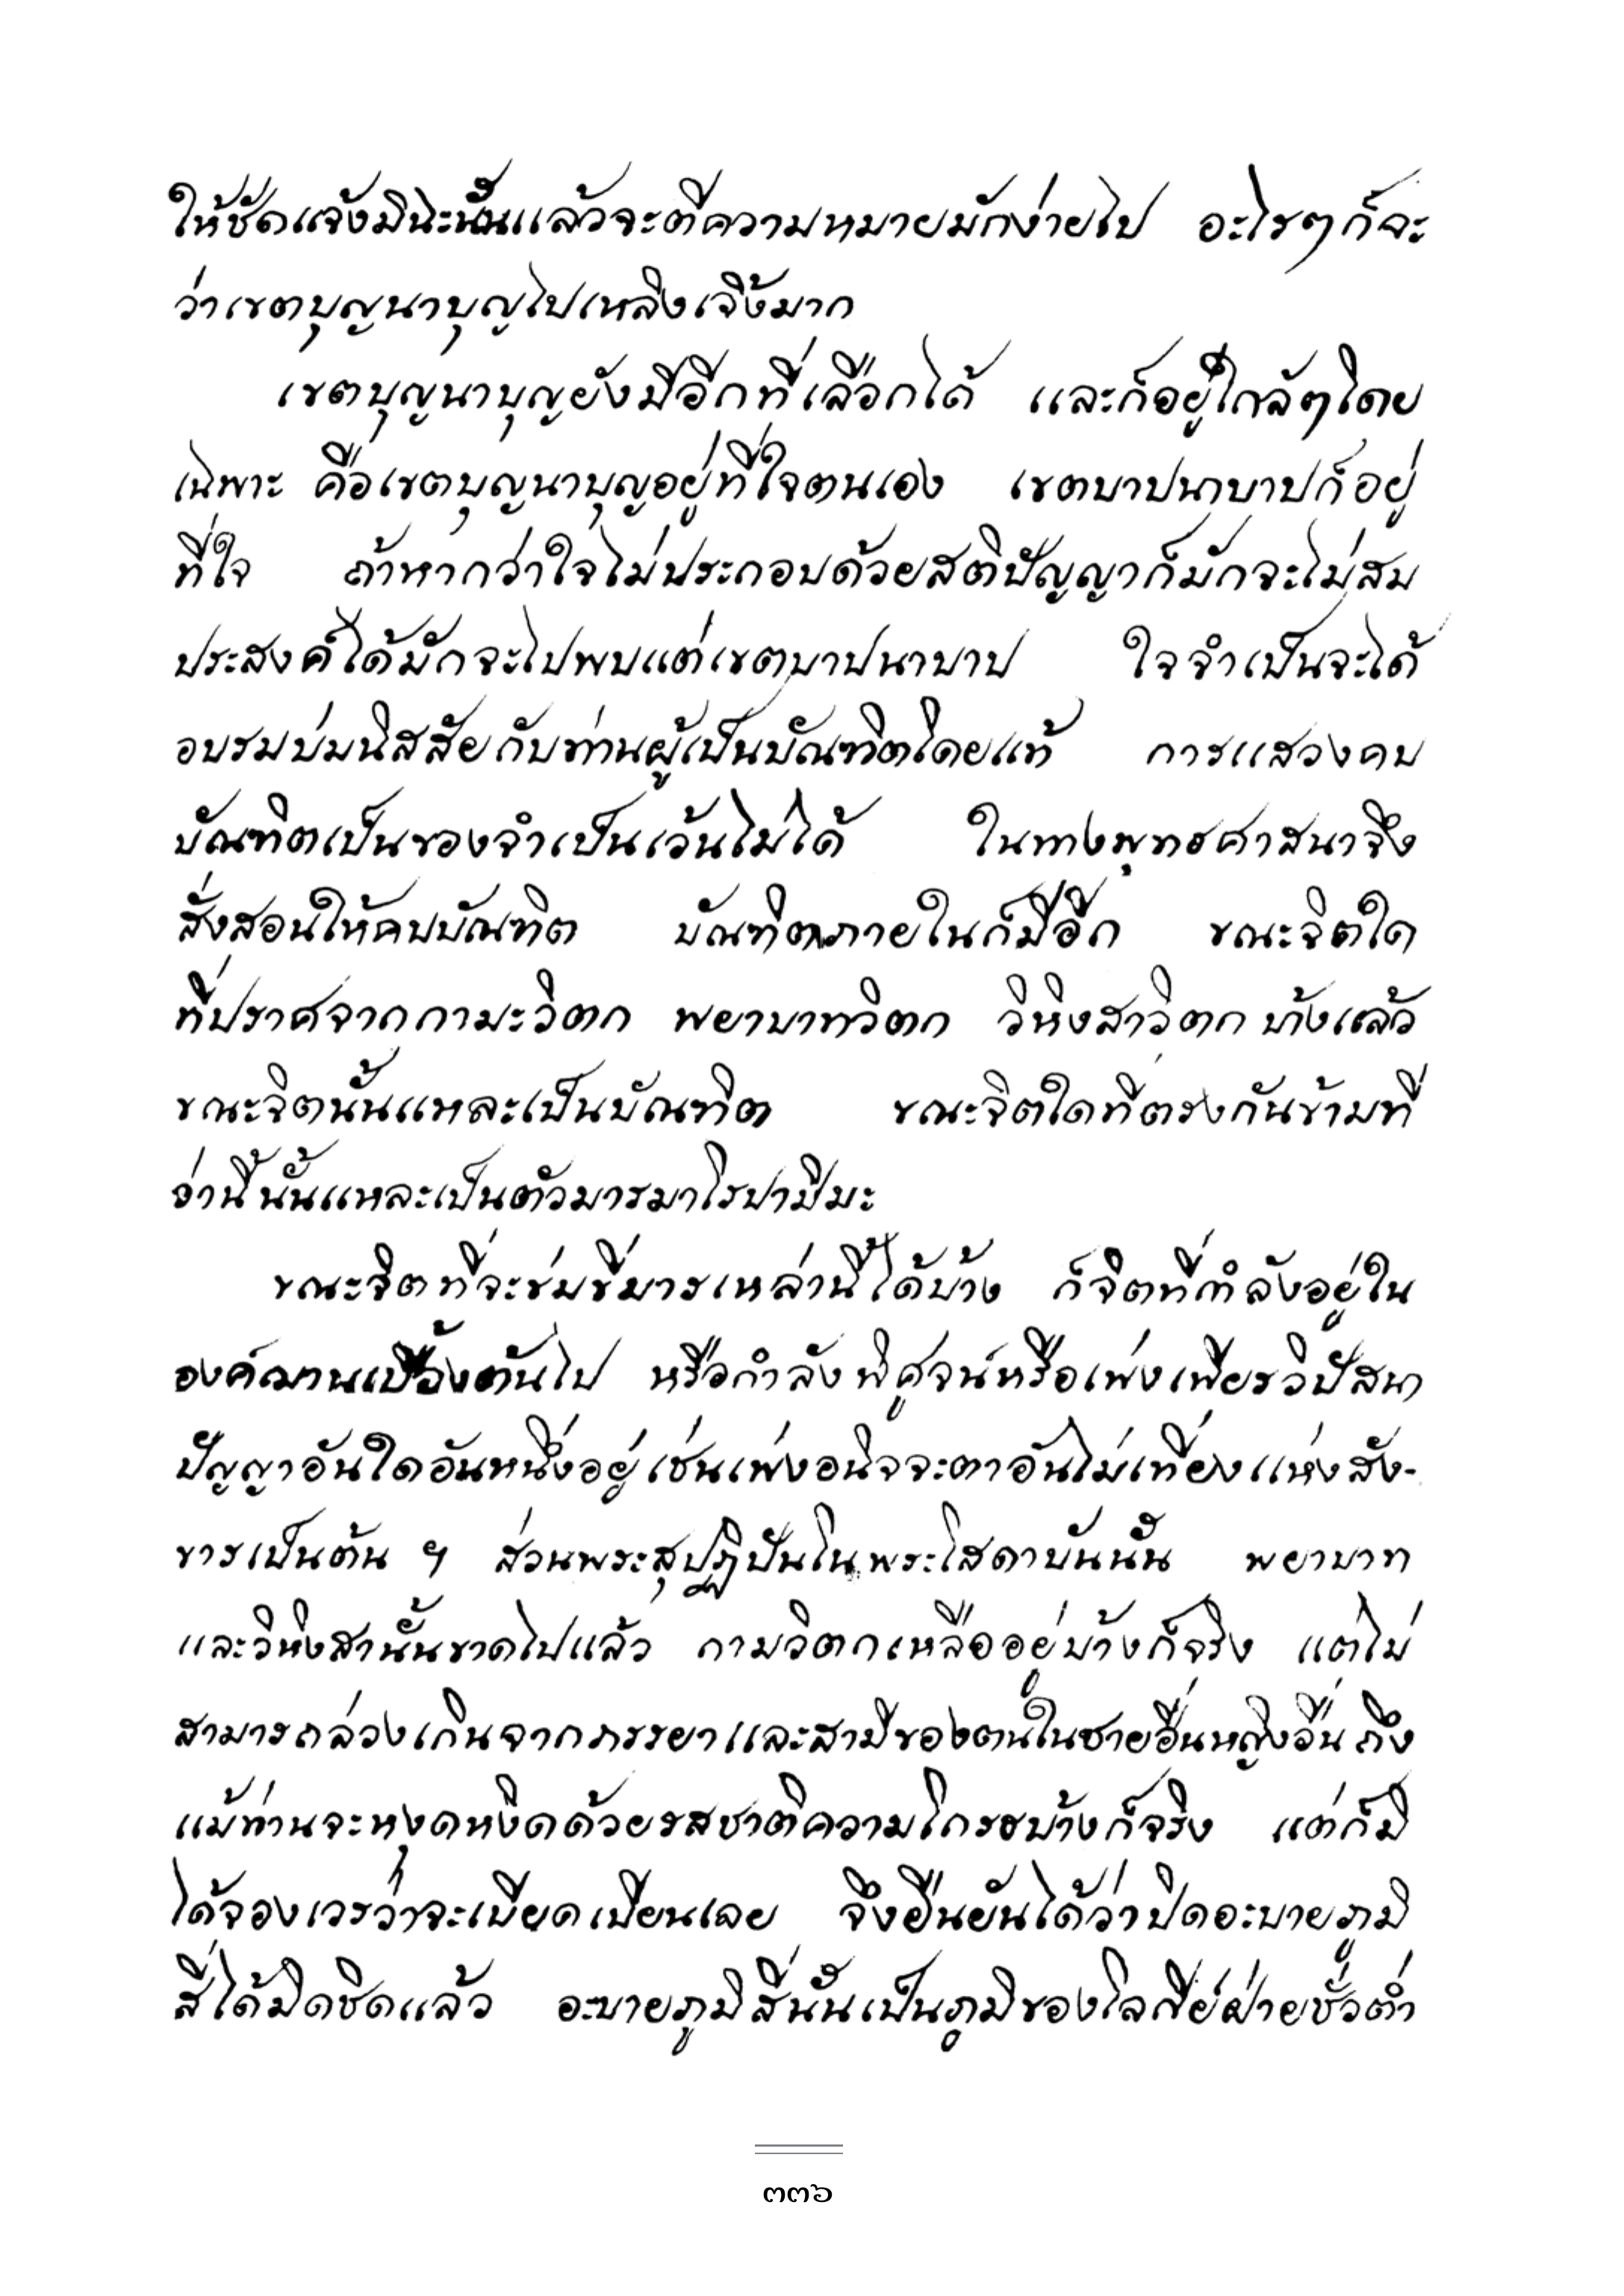 ให้ชัดแจ้งมิฉะนั้นแล้วจะตีความหมายมักง่ายไป อะไรๆก็จะ
ว่าเขตบุญนาบุญไปเหลิงเจิ้งมาก
เขตบุญนาบุญยังมีอีกที่เลือกได้ และก็อยู่ใกล้ๆโดย
เฉพาะ คือเขตบุญนาบุญอยู่ที่ใจตนเอง เขตบาปนาบาปก็อยู่
ที่ใจ ถ้าหากว่าใจไม่ประกอบด้วยสติปัญญาก็มักจะไม่สม
ประสงค์ได้มักจะไปพบแต่เขตบาปนาบาป ใจจำเป็นจะได้
อบรมบ่มนิสสัยกับท่านผู้เป็นบัณฑิตโดยแท้ การแสวงคบ
บัณฑิตเป็นของจำเป็นเว้นไม่ได้ ในทางพุทธศาสนาจึง
สั่งสอนให้คบบัณฑิต บัณฑิตภายในก็มีอีก ขณะจิตใด
ที่ปราศจากกามะวิตก พยาบาทวิตก วิหิงสาวิตก บ้างแล้ว
ขณะจิตนั้นแหละเป็นบัณฑิต ขณะจิตใดที่ตรงกันข้ามที่
ว่านี้นั้นแหละเป็นตัวมารมาโรปาปิมะ
ขณะจิตที่จะข่มขี่มารเหล่านี้ได้บ้าง ก็จิตที่กำลังอยู่ใน
องค์ฌานเบื้องต้นไป หรือกำลังพิศูจน์หรือเพ่งเพียรวิปัสนา
ปัญญาอันใดอันหนึ่งอยู่ เช่นเพ่งอนิจจะตาอันไม่เที่ยงแห่งสัง-
ขารเป็นต้น ฯ ส่วนพระสุปฏิปันโนพระโสดาบันนั้น พยาบาท
และวิหิงสานั้นขาดไปแล้ว กามวิตกเหลืออยู่บ้างก็จริง แต่ไม่
สามารถล่วงเกินจากภรรยาและสามีของตนในชายอื่นหญิงอื่น ถึง
แม้ท่านจะหงุดหงิดด้วยรสชาติความโกรธบ้างก็จริง แต่ก็มิ
ได้จองเวรว่าจะเบียดเบียนเลย จึงยืนยันได้ว่าปิดอะบายภูมิ
สี่ได้มิดชิดแล้ว อะบายภูมิสี่นั้นเป็นภูมิของโลกีย์ฝ่ายชั่วต่ำ
๓๓๖